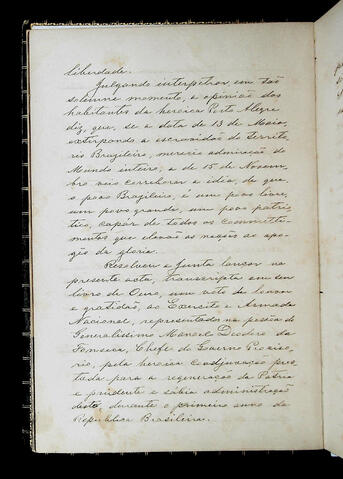 liberdade.
Julgando interpretar, em tão
solemne momento, a opinião dos
habitantes da heroica Porto Alegre
diz, que, se a data de 13 de Maio,
extirpando a escravidão do territo
rio Brazileiro, mereceu admiração do
Mundo inteiro, a de 15 de Novem
bro veio corroborar a idéia, de que
o povo Brazileiro, é um povo livre,
um povo grande, um povo patrio
tico, capáz de todos os commetti-
mentos que elevão as nações ao apo
gêo da gloria.
Resolveu a Junta lançar na
presente acta, transcripta em seu
livro de Ouro, um voto de louvor
e gratidão, ao Exercito e Armada
Nacional, representados na pessôa do
Generalissimo Manoel Deodoro da
Fonseca, Chefe do Governo Provizo
rio, pela heroica coadjuvação pres
tada para a regeneração da Patria
e prudente e sábia administração
desta, durante o primeiro anno da
Republica Brasileira.